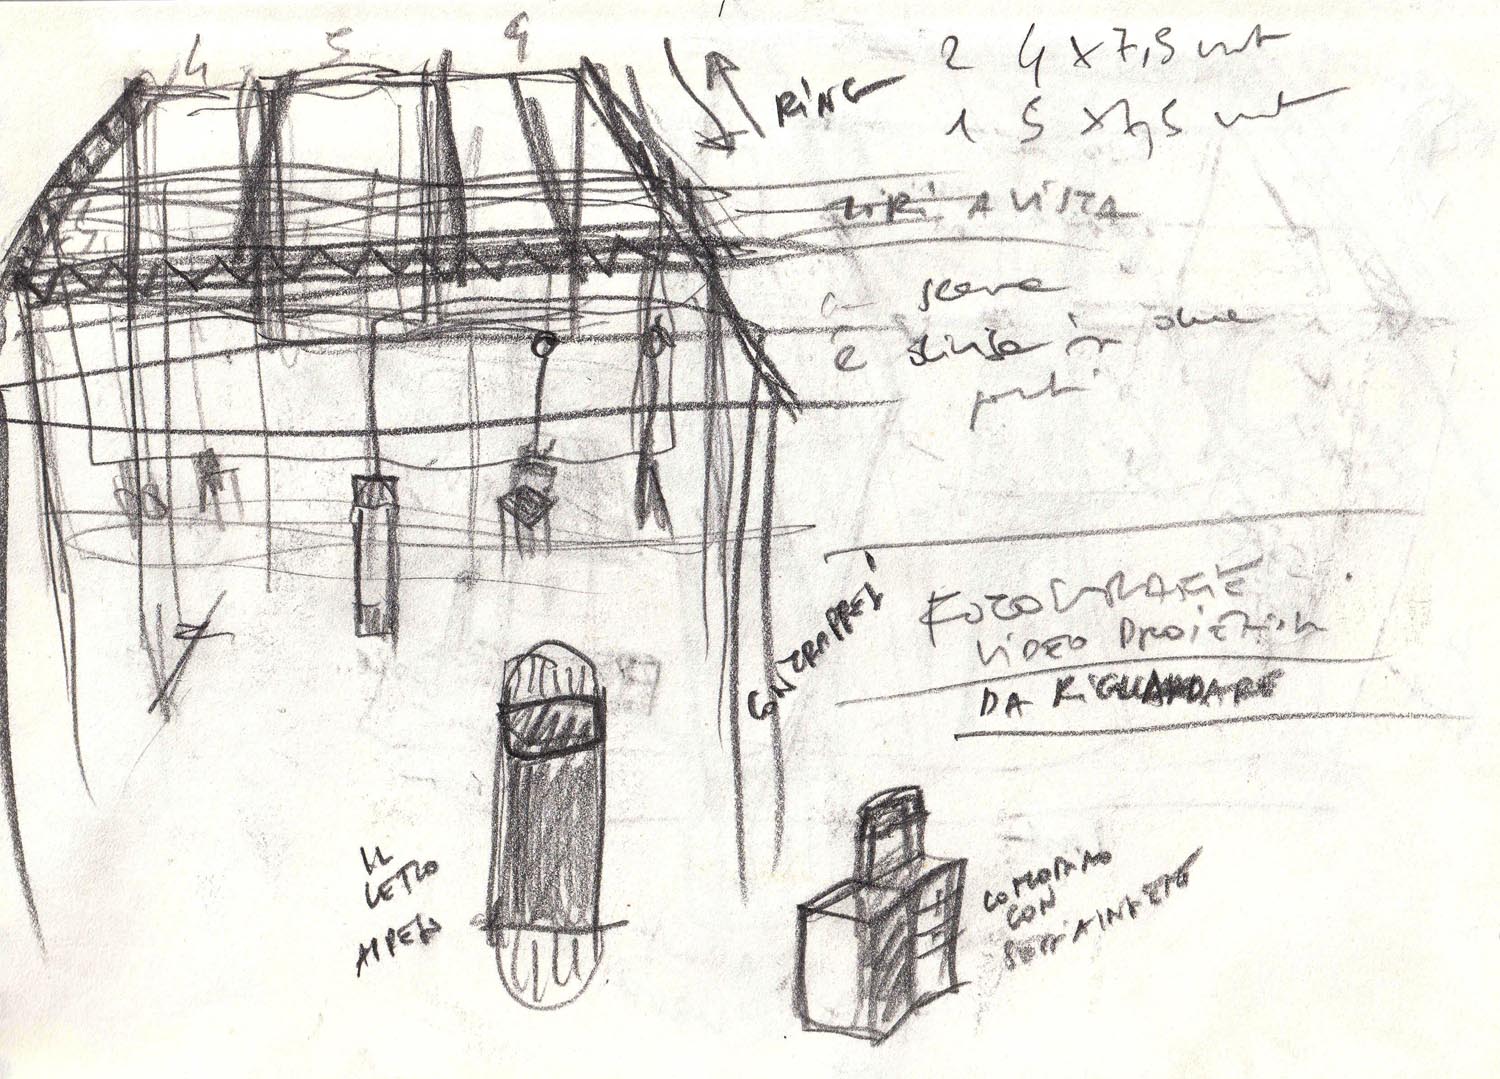 4 5 4
2 4 x 7,5 mt
RING
1 5 x 7,5 mt
TIRI A VISTA
scena
è divisa in due
parti
CONTRAPPESI
FOTOGRAFIE
VIDEO PROIETTATA
DA RIGUARDARE
IL
LETTO
APPESO
COMODINO
CON